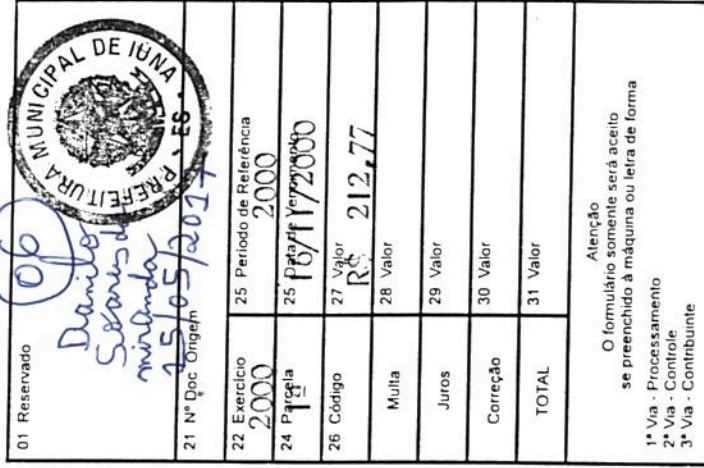 01 Reservado
06
Danilo
Soares de
miranda
25/05/2017
PREFEITURA MUNICIPAL DE IÚNA
- ES -
21 Nº Doc Origem
22 Exercício
2000
25 Período de Referência
2000
24 Parcela
1ª
25 Data de Vencimento
16/11/2000
26 Código
27 Valor
R$ 212,77
Multa
28 Valor
Juros
29 Valor
Correção
30 Valor
TOTAL
31 Valor
Atenção
O formulário somente será aceito
se preenchido à máquina ou letra de forma
1ª Via - Processamento
2ª Via - Controle
3ª Via - Contribuinte